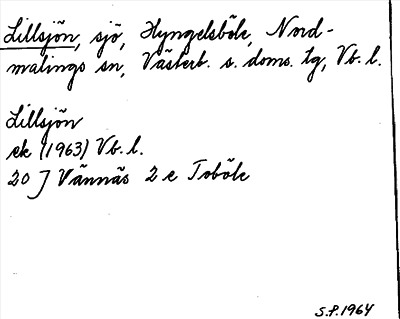 Lillsjön, sjö, Hyngelsböle, Nord-
malings sn, Västerb. s. doms. tg, Vb. l.
Lillsjön
ek (1963) Vb. l.
20 J Vännäs 2 e Toböle
S.P. 1964